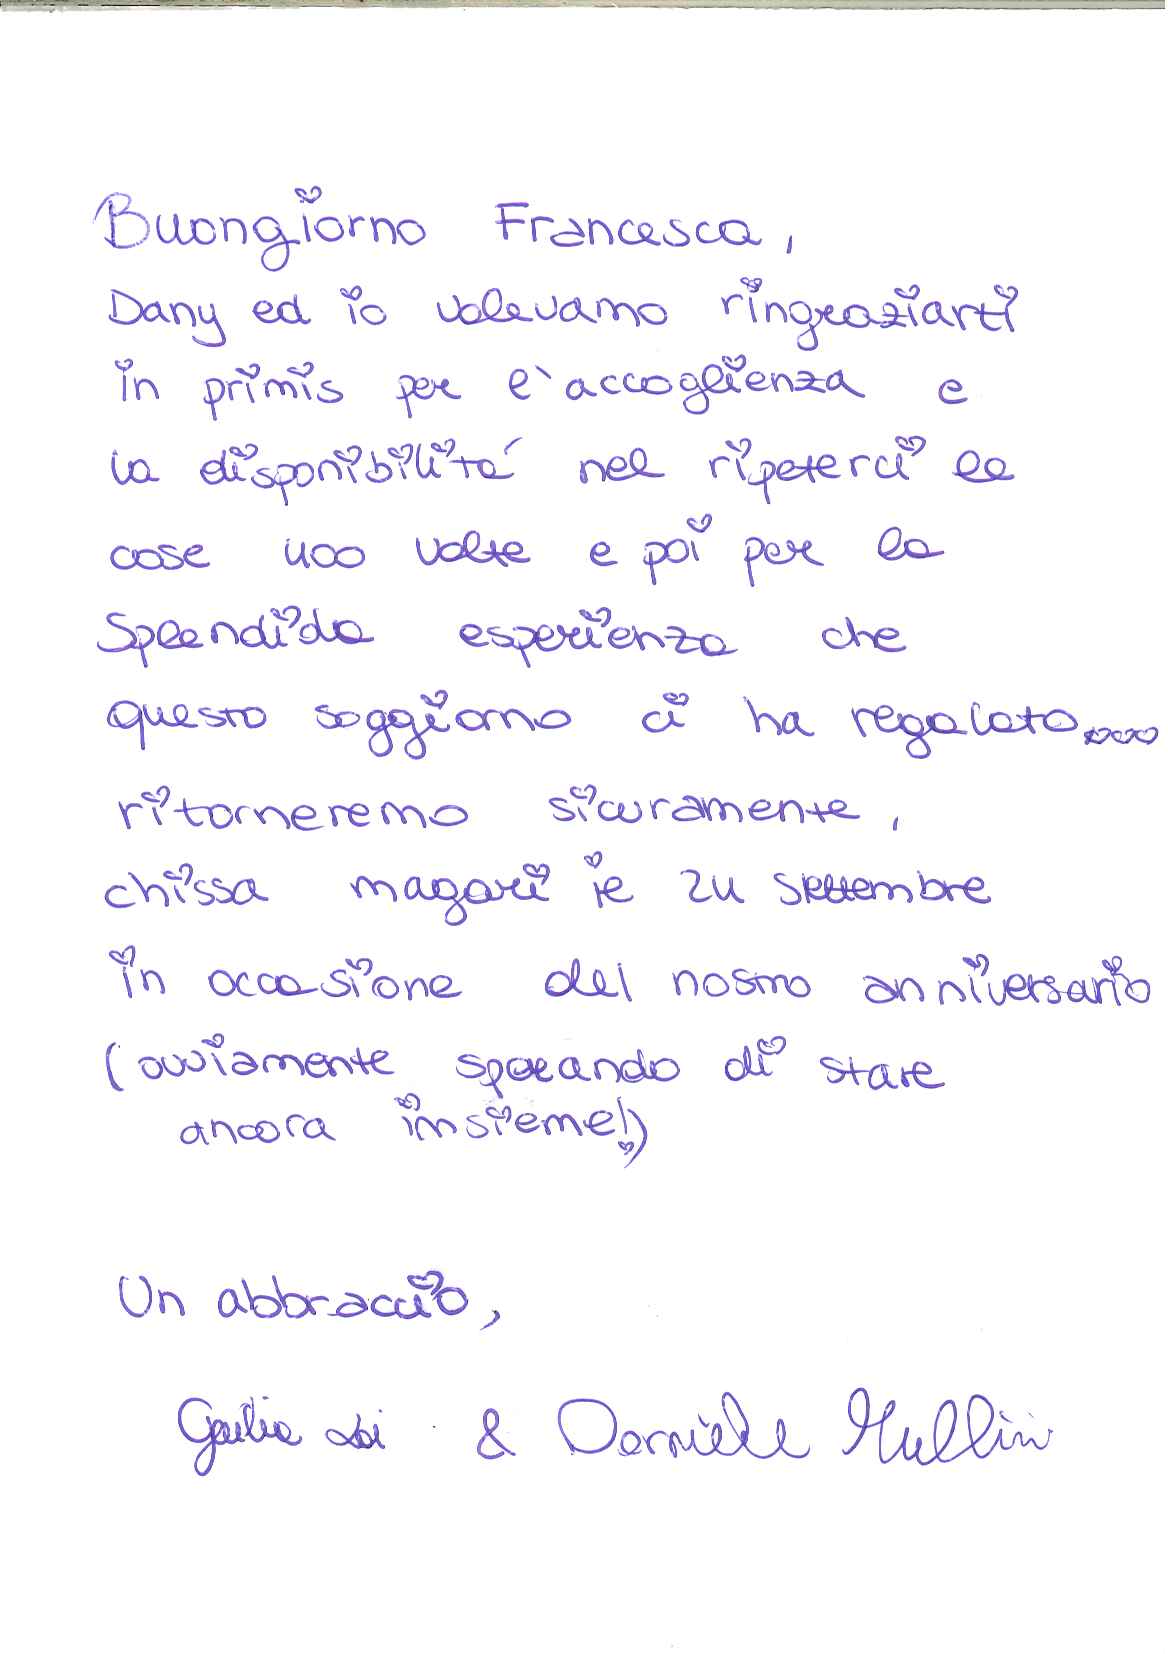 Buongiorno Francesca,
Dany ed io volevamo ringraziarti
in primis per l'accoglienza e
la disponibilità nel ripeterci le
cose 400 volte e poi per la
splendida esperienza che
questo soggiorno ci ha regalato...
ritorneremo sicuramente,
chissa magari il 24 settembre
in occasione del nostro anniversario
(ovviamente sperando di stare
ancora insieme!)
Un abbraccio,
Giulia & Daniele